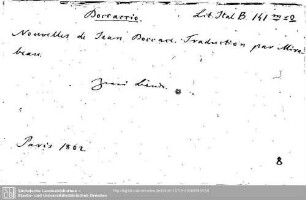 Boccaccio. Lit. Ital. B 141
Nouvelles de Jean Boccace. Traduction par Mira-
beau.
Zwei Bände.
Paris 1802
8
Sächsische Landesbibliothek -
Staats- und Universitätsbibliothek Dresden